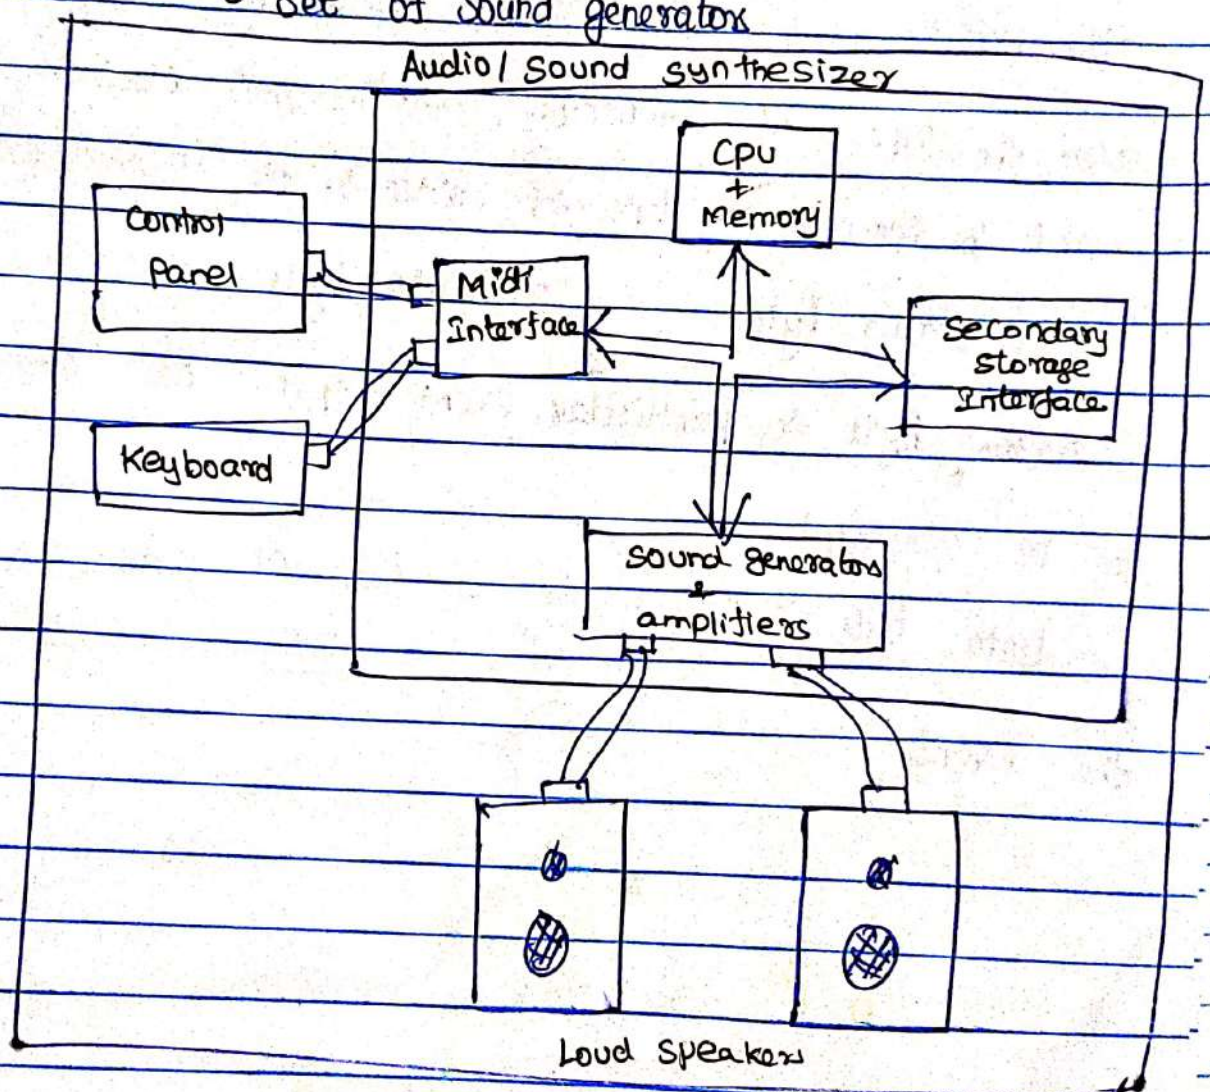 Set of sound generators
Audio/sound synthesizer
CPU
+
Memory
Control
Panel
Midi
Interface
Secondary
storage
Interface
Keyboard
sound generators
&
amplifiers
Loud speakers